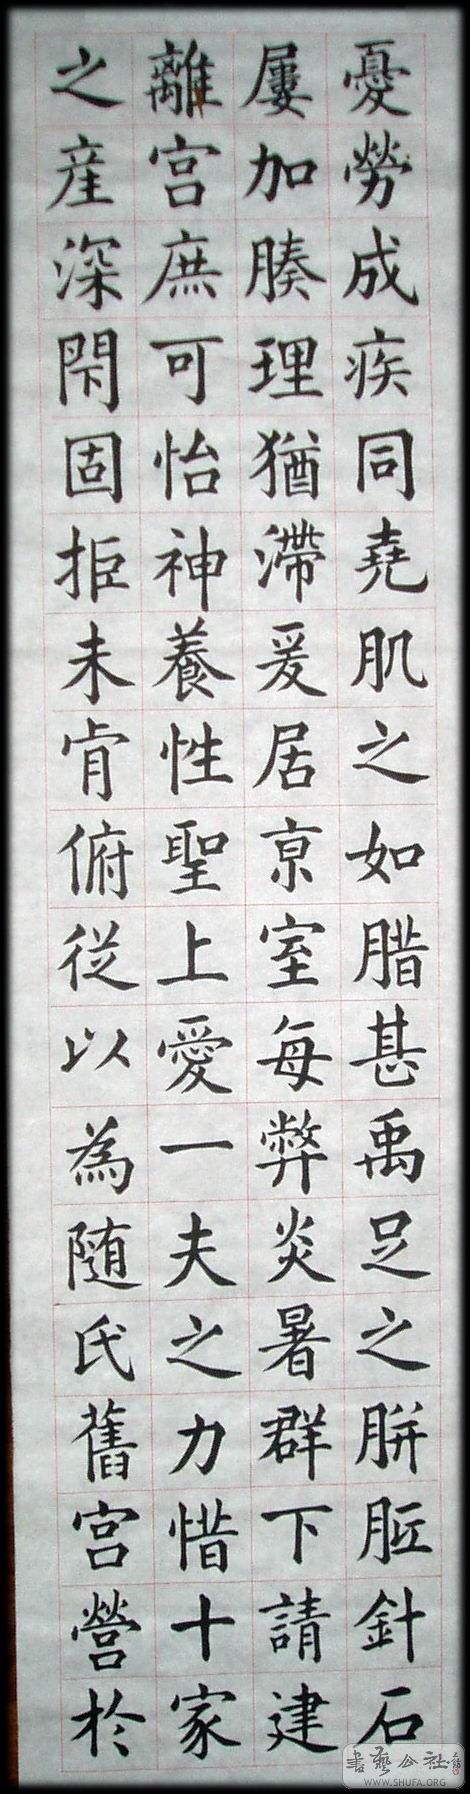 憂勞成疾同堯肌之如腊甚禹足之胼胝針石
屢加腠理猶滯爰居京室每弊炎暑群下請建
離宮庶可怡神養性聖上愛一夫之力惜十家
之産深閇固拒未肯俯従以為随氏舊宮營於
書藝公社
WWW.SHUFA.ORG